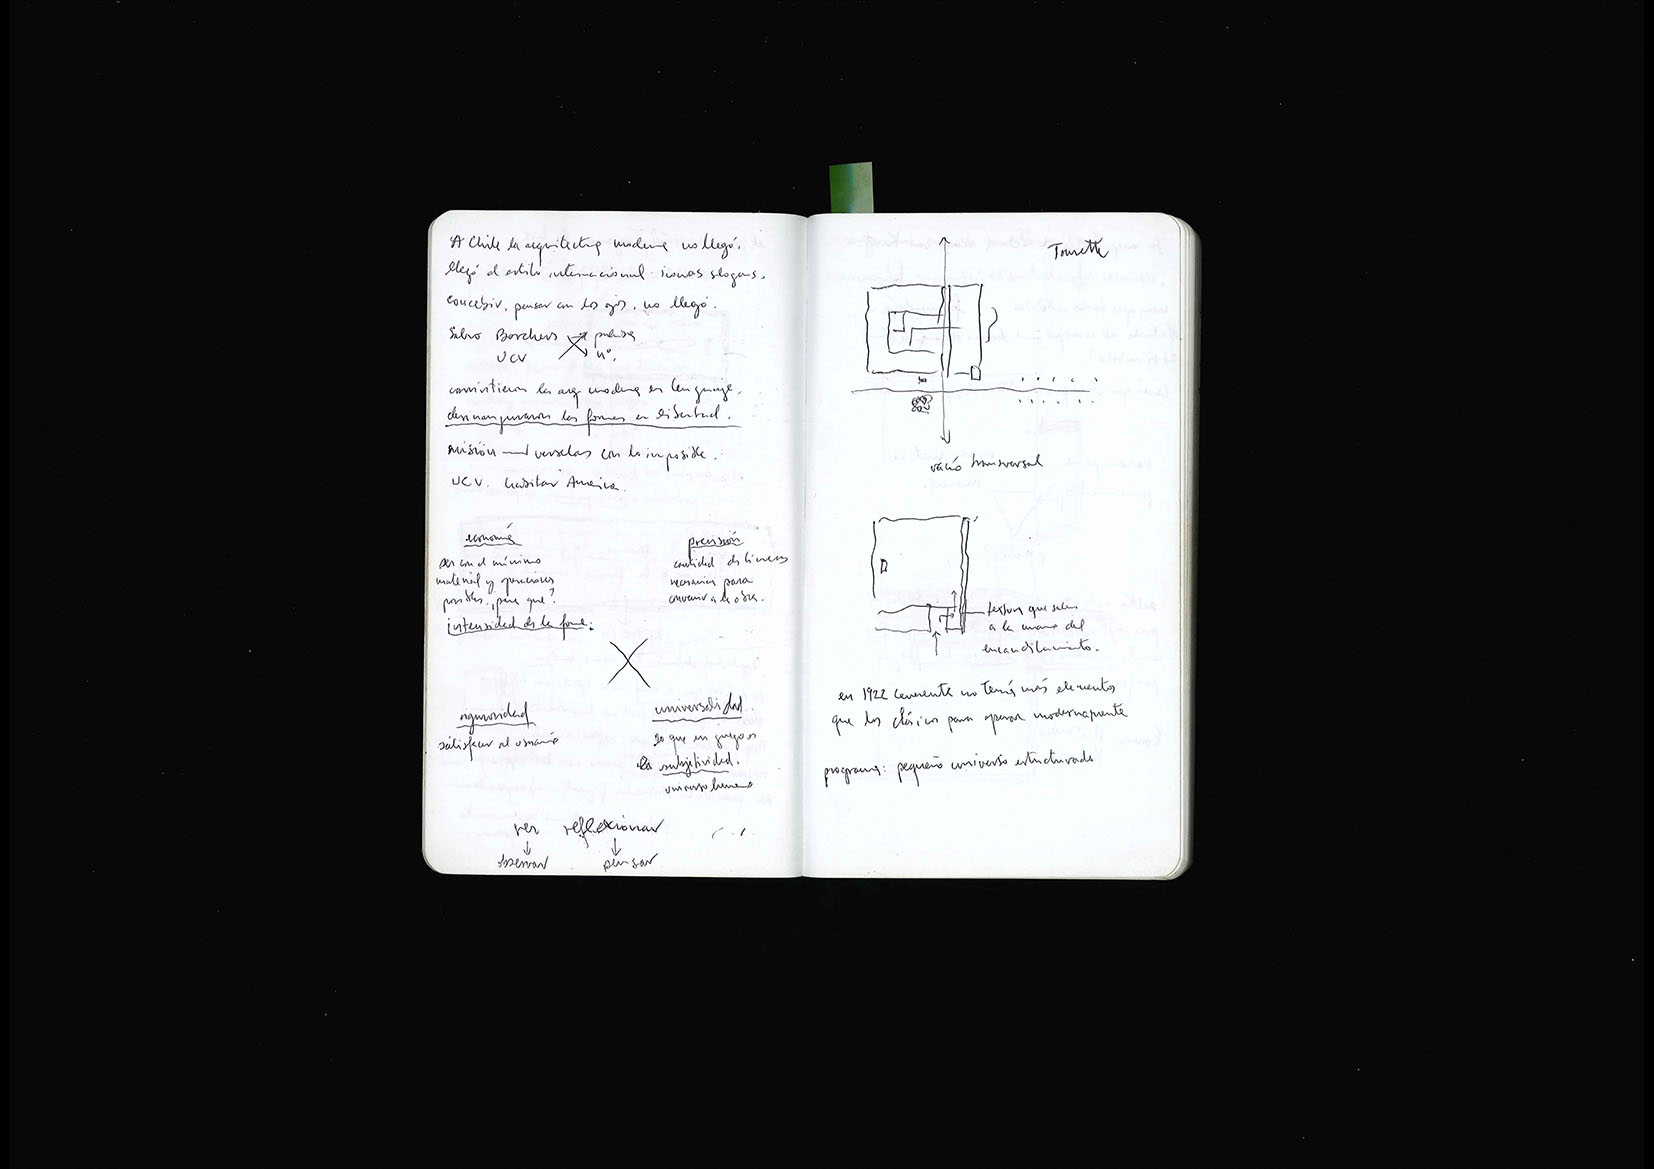 A Chile la arquitectura moderna no llegó.
llegó el estilo internacional iconos slogans.
concebir, pensar con los ojos, no llegó.
Salvo Borchers palabra
UCV nº.
convirtieron la arq moderna en lenguaje.
las formas en libertad.
misión verselas con lo imposible.
UCV. habitar América.
economía
ser con el mínimo
material y operaciones
posibles. ¿para qué?
intensidad de la forma.
precisión
cantidad de líneas
necesarias para
convenir a la obra.
rigurosidad
satisfacer al usuario
universalidad.
lo que en juego es
la subjetividad.
universo humano
ver reflexionar
observar pensar
Tourette
vacío transversal
textura que sale
a la mano del
encandilamiento.
en 1922 no tenía más elementos
que los clásicos para operar modernamente
programa: pequeño universo estructurado